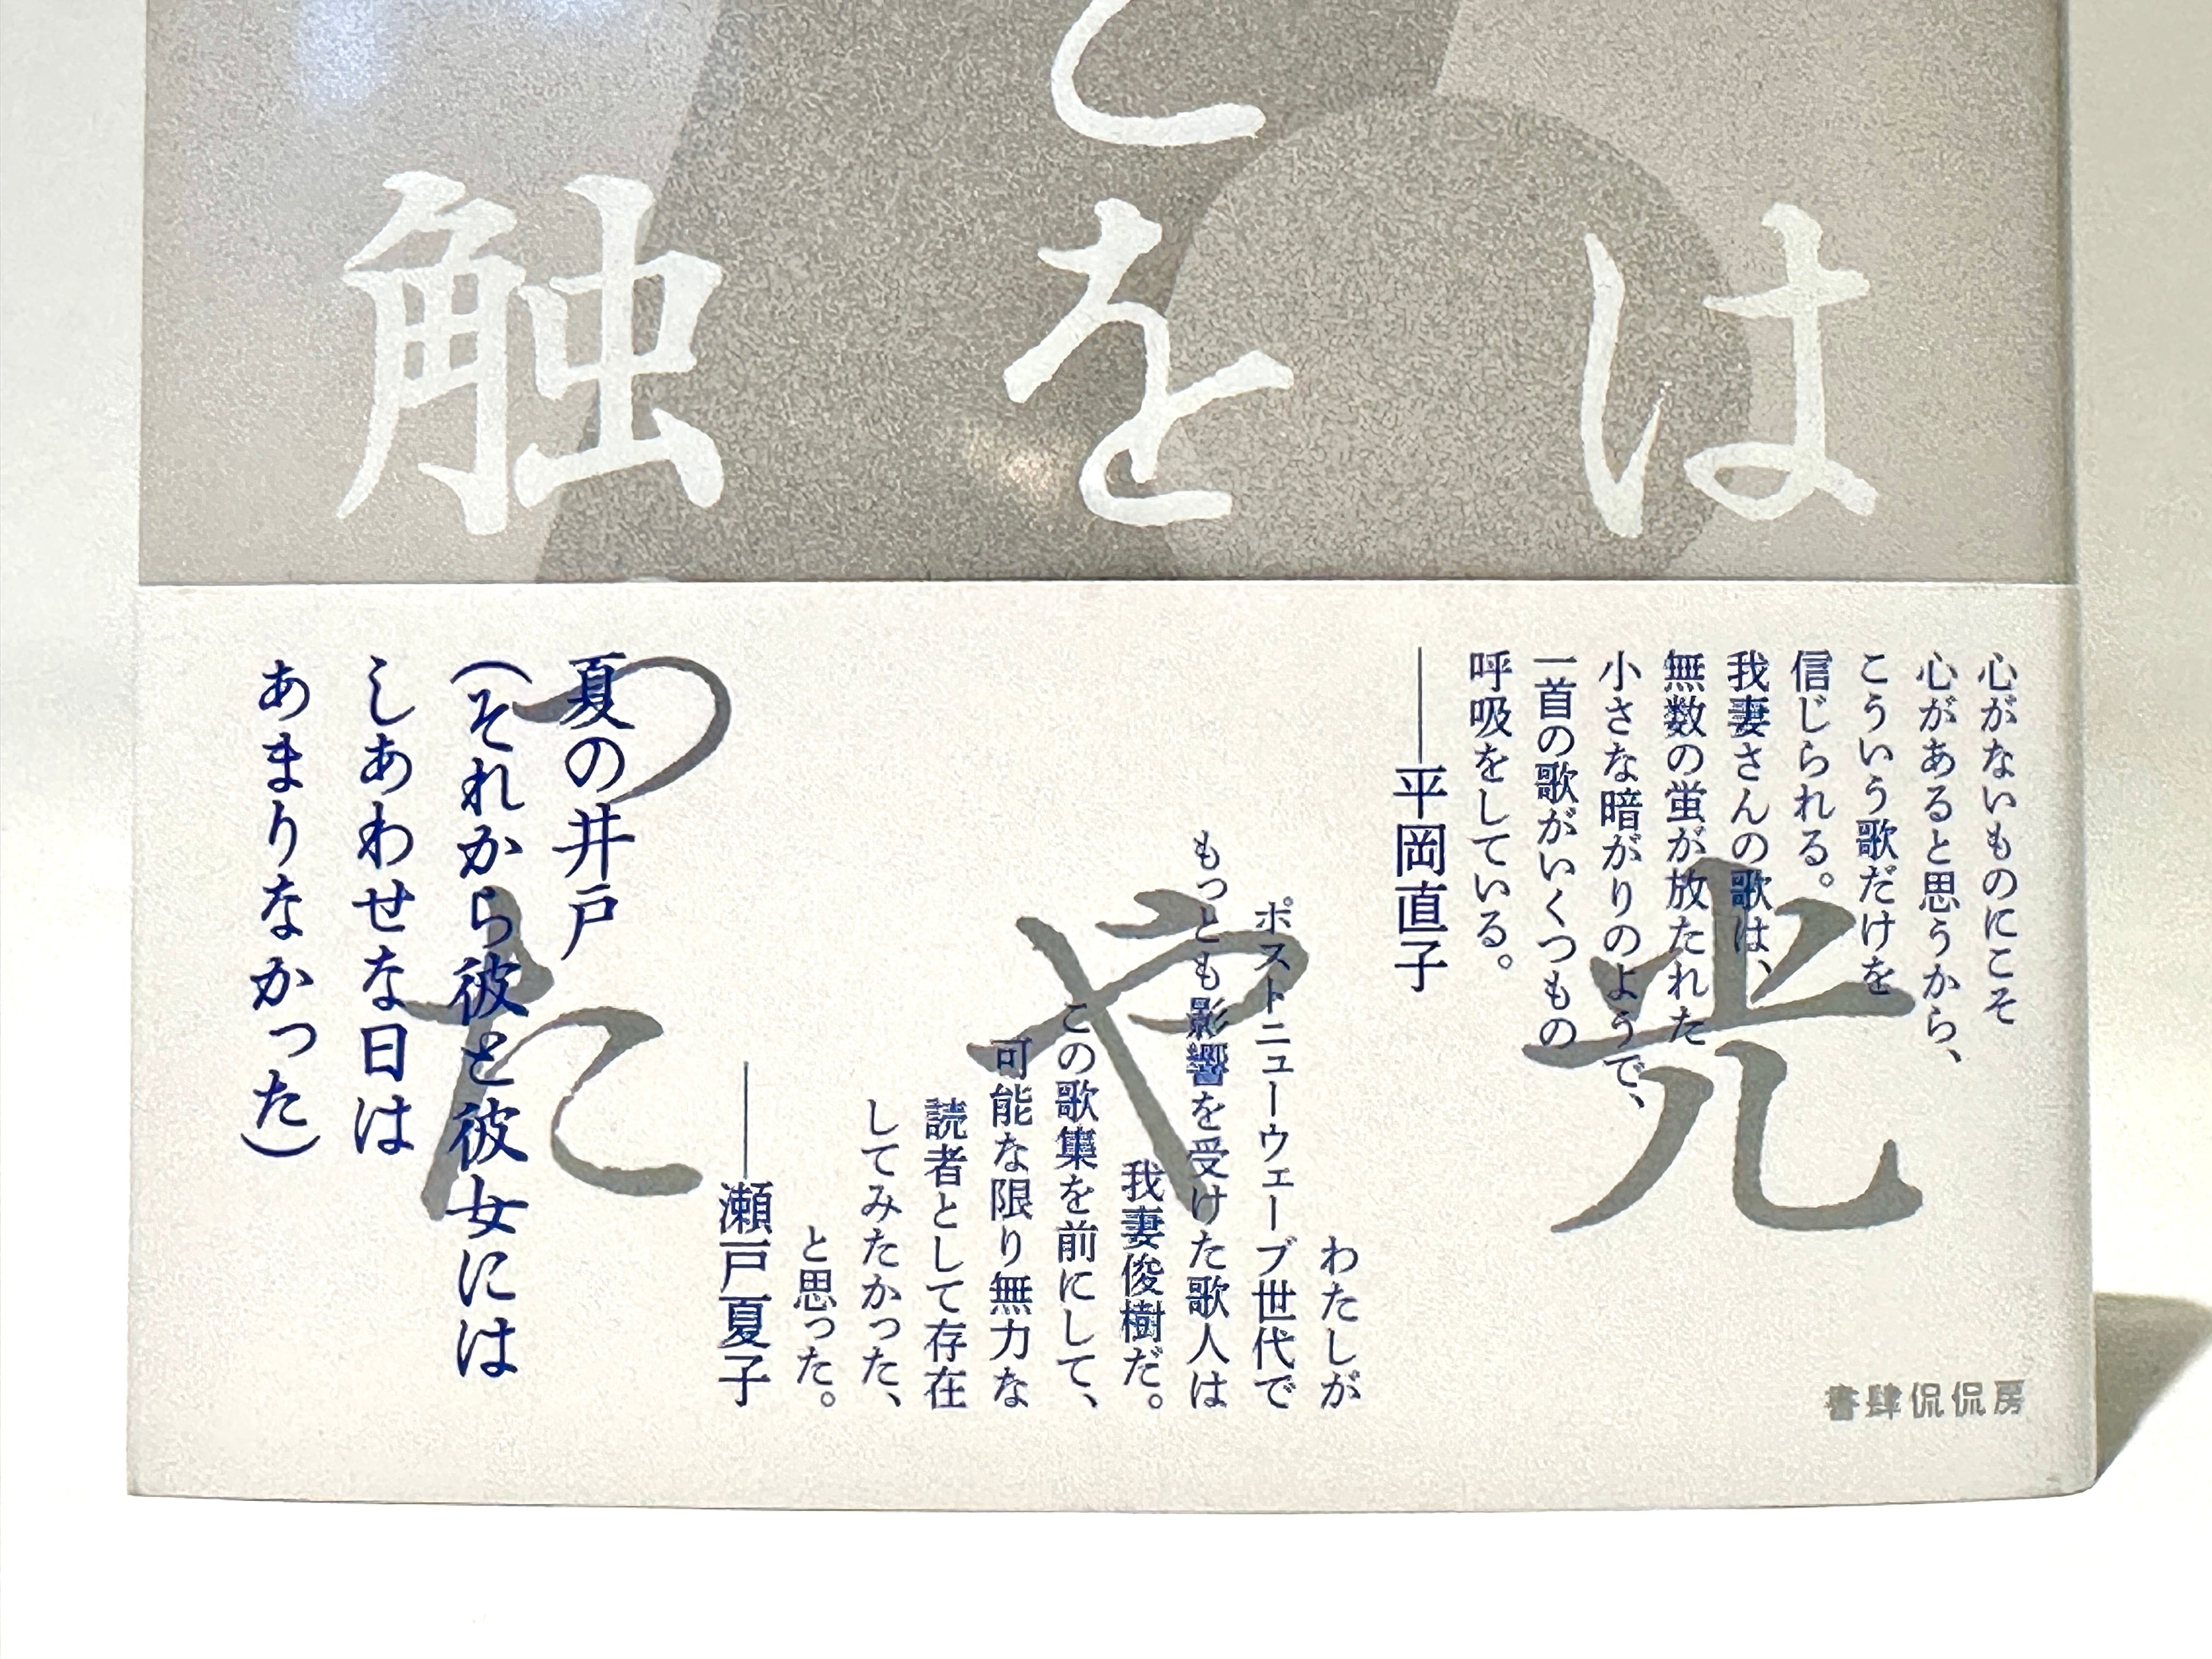 は
光
とを
や
触
った
心がないものにこそ
心があると思うから、
こういう歌だけを
信じられる。
我妻さんの歌は、
無数の蛍が放たれた
小さな暗がりのようで、
一首の歌がいくつもの
呼吸をしている。
――平岡直子
わたしが
ポストニューウェーブ世代で
もっとも影響を受けた歌人は
我妻俊樹だ。
この歌集を前にして、
可能な限り無力な
読者として存在
してみたかった、
と思った。
――瀬戸夏子
夏の井戸
（それから彼と彼女には
しあわせな日は
あまりなかった）
書肆侃侃房